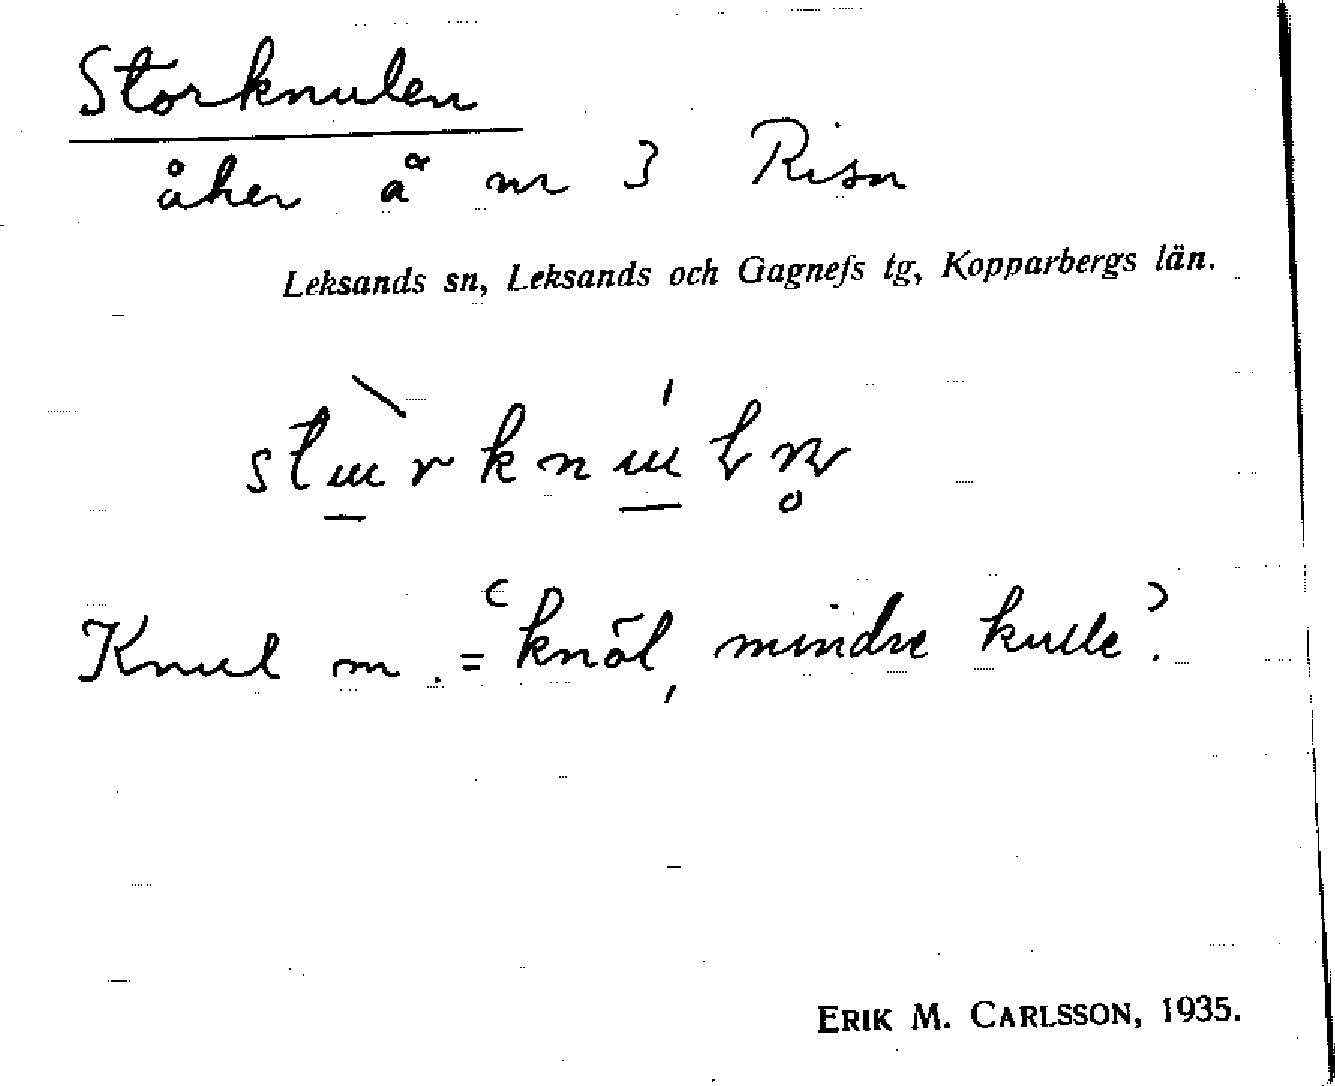 Storknulen
åker å nr 3 Risa
Leksands sn, Leksands och Gagnefs tg, Kopparbergs län.
Knul m. = ‘knöl, mindre kulle’.
ERIK M. CARLSSON, 1935.